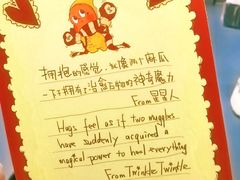 拥抱的感觉，就像两个麻瓜
一下子拥有了治愈万物的神奇魔力
From 星星人
Hugs feel as if two muggles
have suddenly acquired a
magical power to heal everything
From Twinkle Twinkle